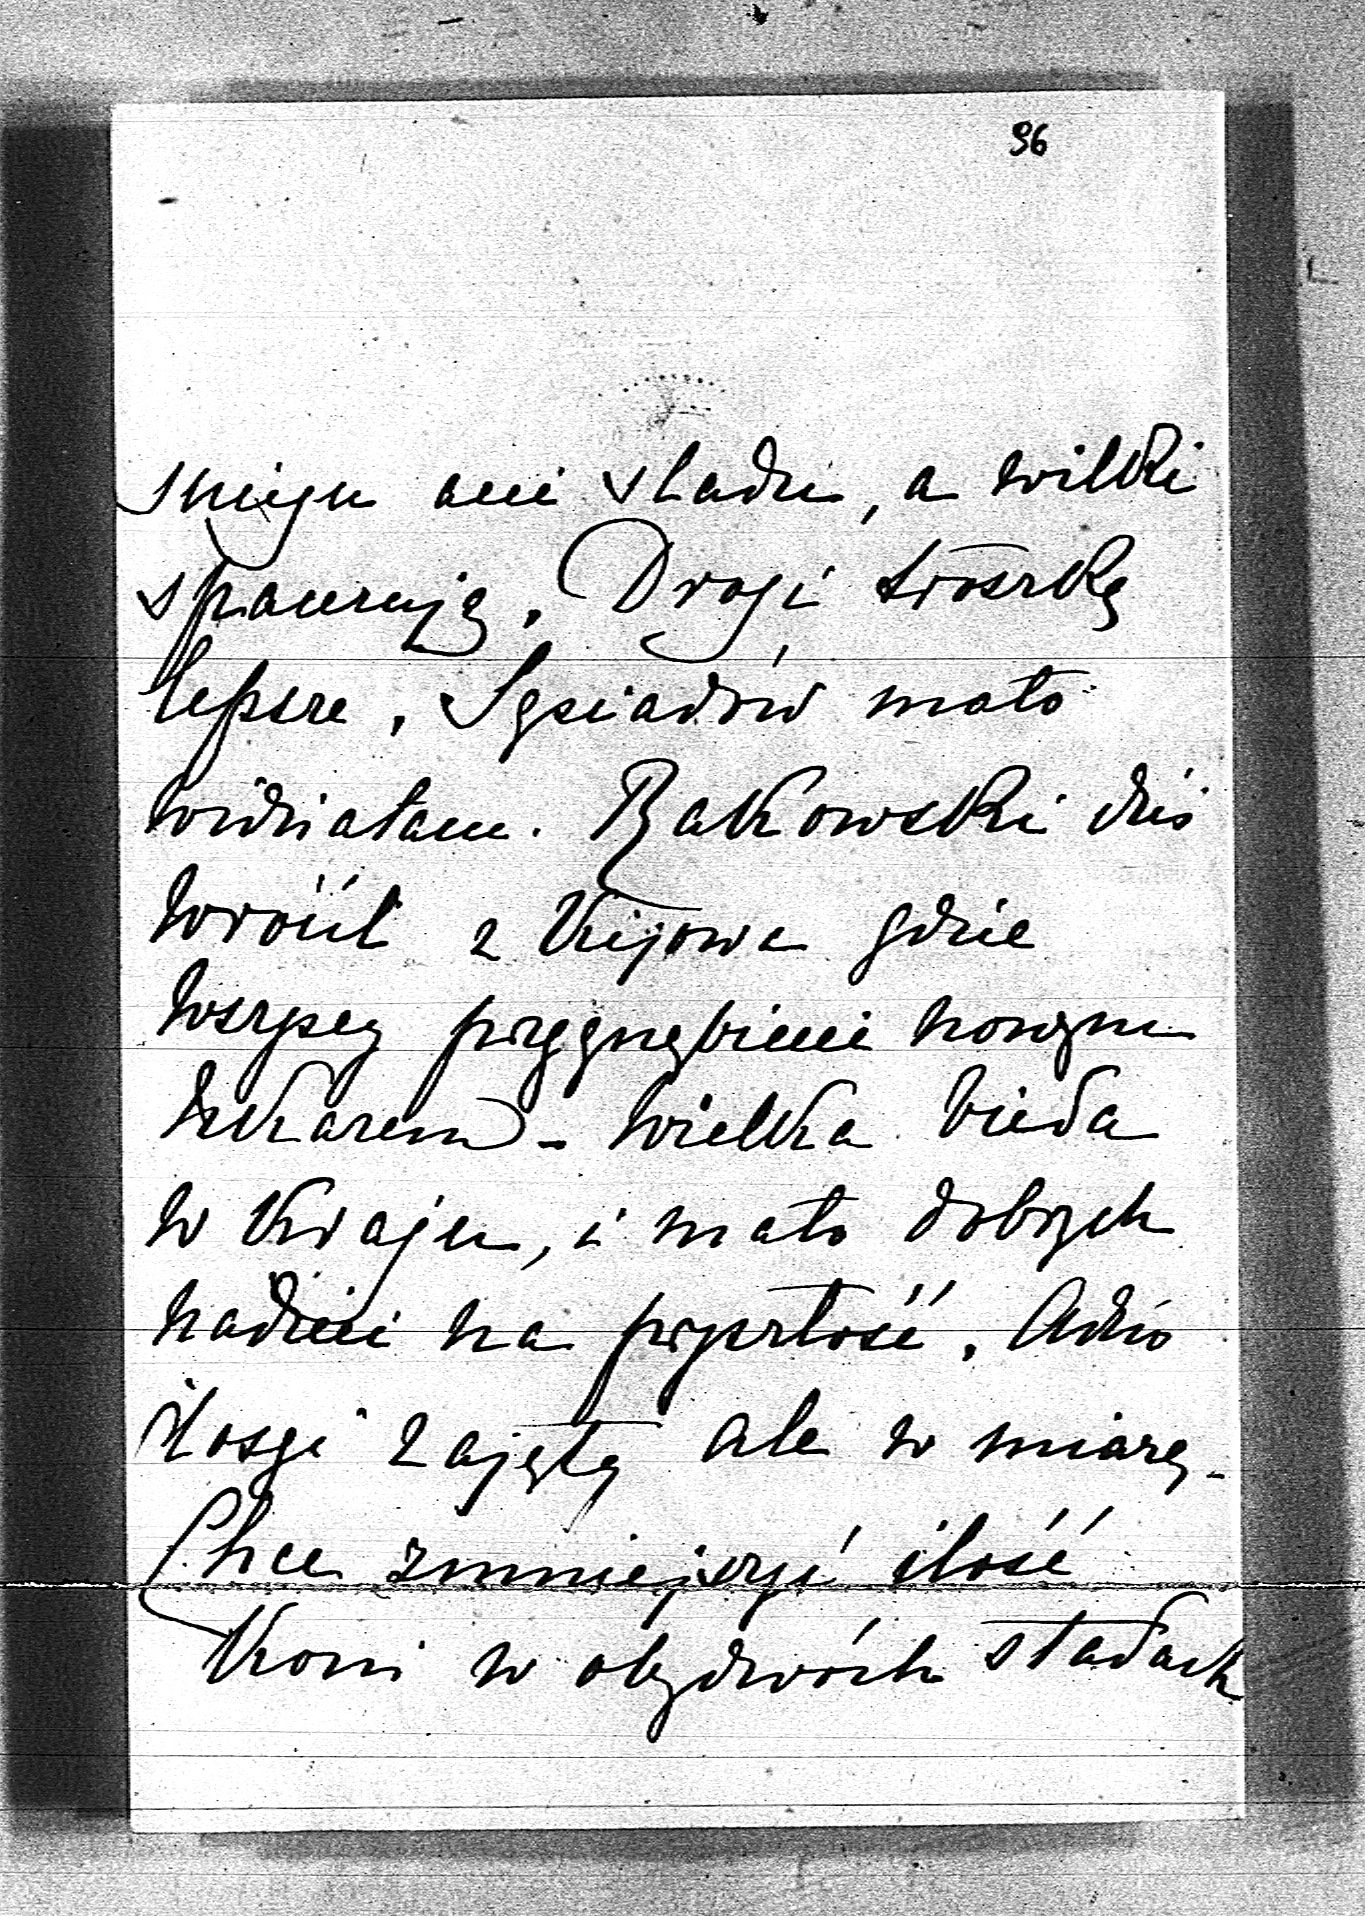 96
sniegu ani śladu, a wilki
spacerują. Drogi troszkę
lepsze. Sąsiadów mało
widziałam. Rakowski dziś
wrócił z Kijowa gdzie
wszyscy przygnębieni nowym
ukazem – wielka bieda
w Kraju, i mało dobrych
nadziei na przyszłość. Adzio
zajęty ale w miarę –
Chce zmniejszyć ilość
Koni w obydwóch stadach